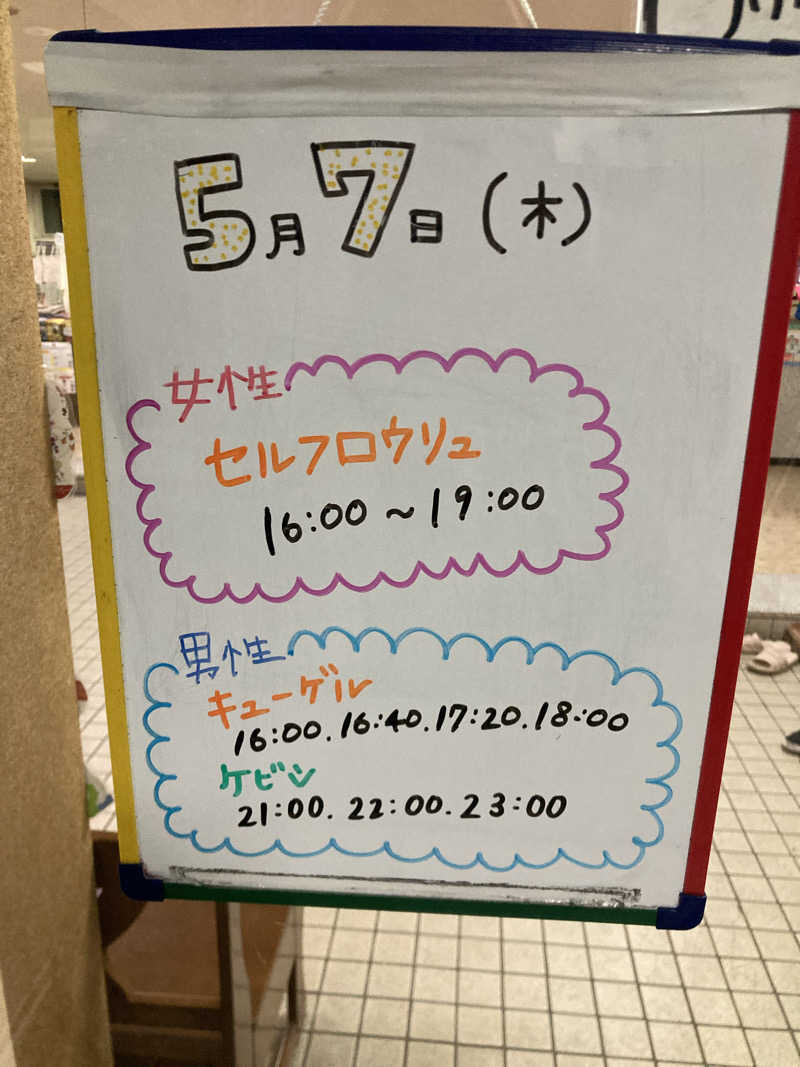 5月7日(木)
女性
セルフロウリュ
16:00~19:00
男性
キューゲル
16:00.16:40.17:20.18:00
ケビン
21:00.22:00.23:00